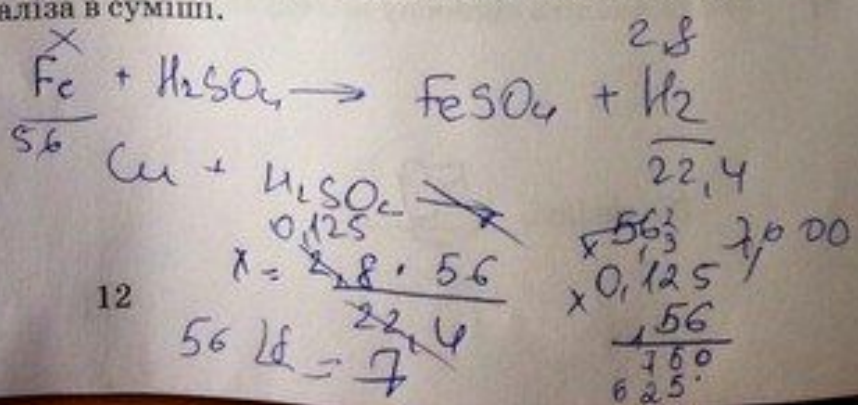 в суміші.
x 2,8
Fe + H2SO4 → FeSO4 + H2
56 22,4
Cu + H2SO4
0,125
x = 2,8 · 56
22,4
56 = 7
56 7,000
x 0,125
56
750
625
12